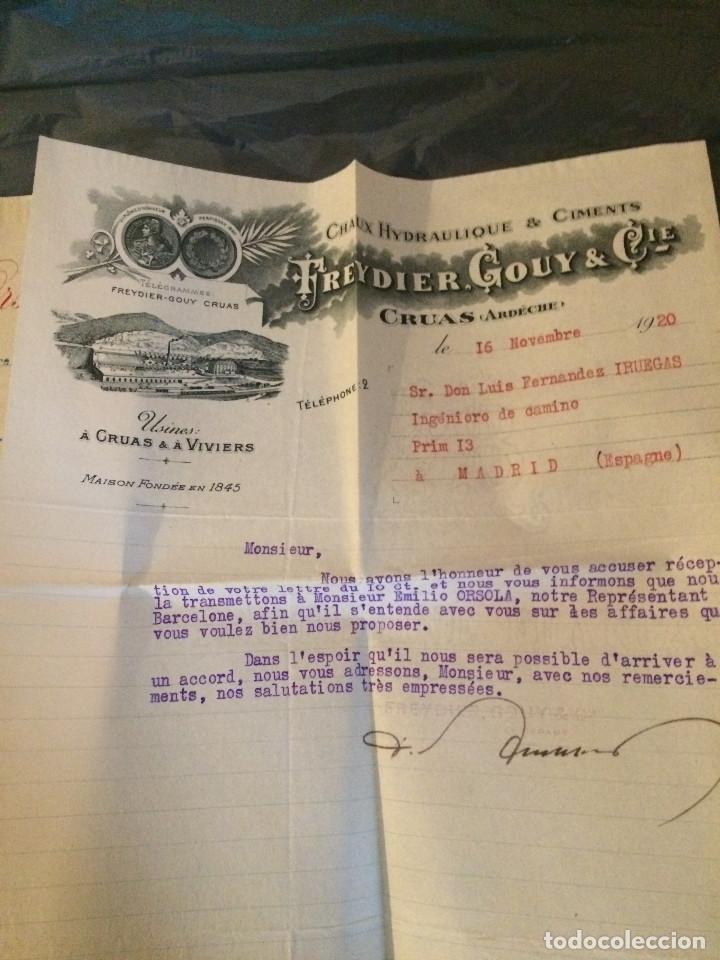 CHAUX HYDRAULIQUE & CIMENTS
FREYDIER, GOUY & CIE
CRUAS (ARDÈCHE)
TÉLÉGRAMMES:
FREYDIER-GOUY CRUAS
TÉLÉPHONE: 2
Usines:
À CRUAS & À VIVIERS
MAISON FONDÉE EN 1845
le 16 Novembre 1920
Sr. Don Luis Fernandez IRUEGAS
Ingénioro de camino
Prim I3
à MADRID (Espagne)
Monsieur,
Nous avons l'honneur de vous accuser récep-
tion de votre lettre du 10 ct. et nous vous informons que nou
la transmettons à Monsieur Emilio ORSOLA, notre Représentant
Barcelone, afin qu'il s'entende avec vous sur les affaires qu
vous voulez bien nous proposer.
Dans l'espoir qu'il nous sera possible d'arriver à
un accord, nous vous adressons, Monsieur, avec nos remercie-
ments, nos salutations très empressées.
FREYDIER, GOUY & C
todocoleccion
todocoleccion.net